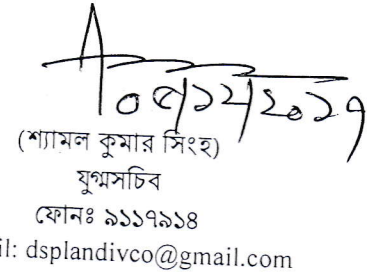 ০৫/১২/২০১৭
(শ্যামল কুমার সিংহ)
যুগ্মসচিব
ফোনঃ ৯১১৭৯১৪
il: dsplandivco@gmail.com